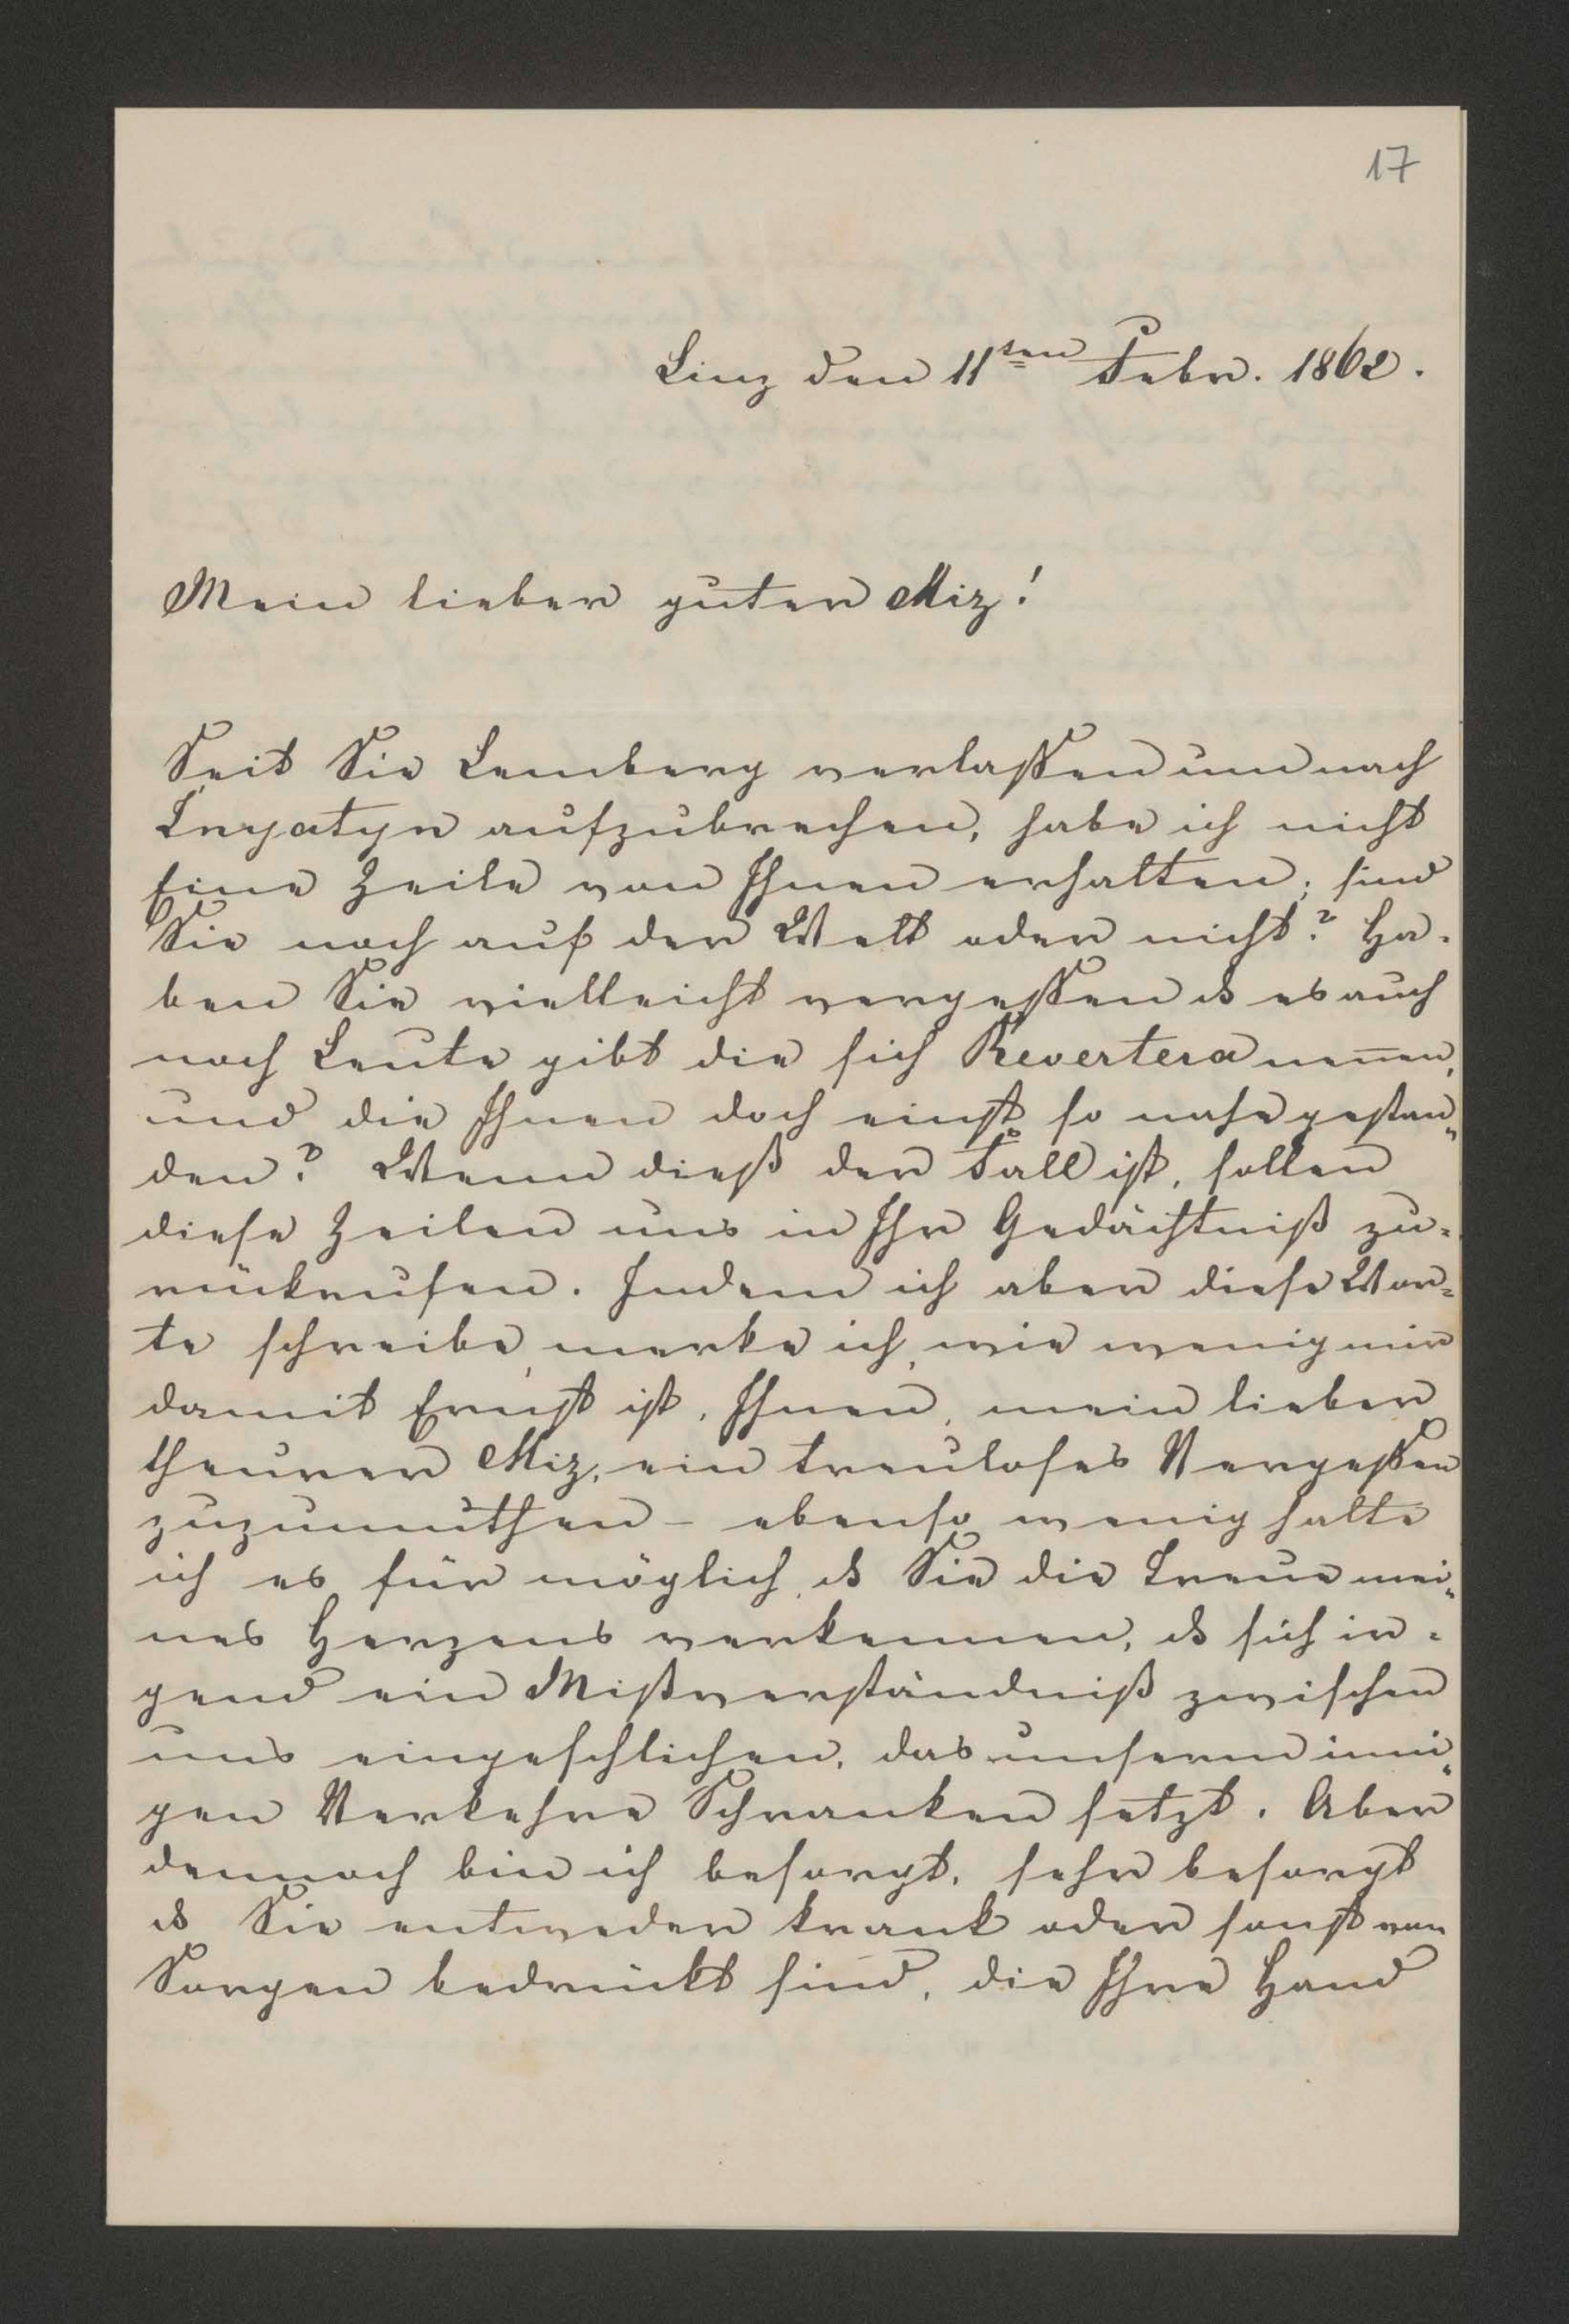 17
Linz den 11ten Febr. 1862.
Mein lieber guter Miz!
Seit Sie Lemberg verlassen um nach
Snyatyn aufzubrechen, habe ich nicht
Eine Zeile von Ihnen erhalten; sind
Sie noch auf der Welt oder nicht? Ha-
ben Sie vielleicht vergessen ds es auch
noch Leute gibt die sich Revertera nen̄en,
und die Ihnen doch einst so nahe gestan„
den? Wenn dieß der Fall ist, sollen
diese Zeilen uns in Ihr Gedächtniß zu-
rückrufen. Indem ich aber diese Wor-
te schreibe, merke ich, wie wenig mir
damit Ernst ist, Ihnen, mein lieber
theurer Miz, ein treuloses Vergessen
zuzumuthen – ebenso wenig halte
ich es für möglich, ds Sie die Treue mei„
nes Herzens verkennen, ds sich ir-
gend ein Mißverständniß zwischen
uns eingeschlichen, das unserm inni„
gen Verkehre Schranken setzt. Aber
dennoch bin ich besorgt, sehr besorgt
ds Sie entweder krank oder sonst von
Sorgen bedrückt sind, die Ihre Hand